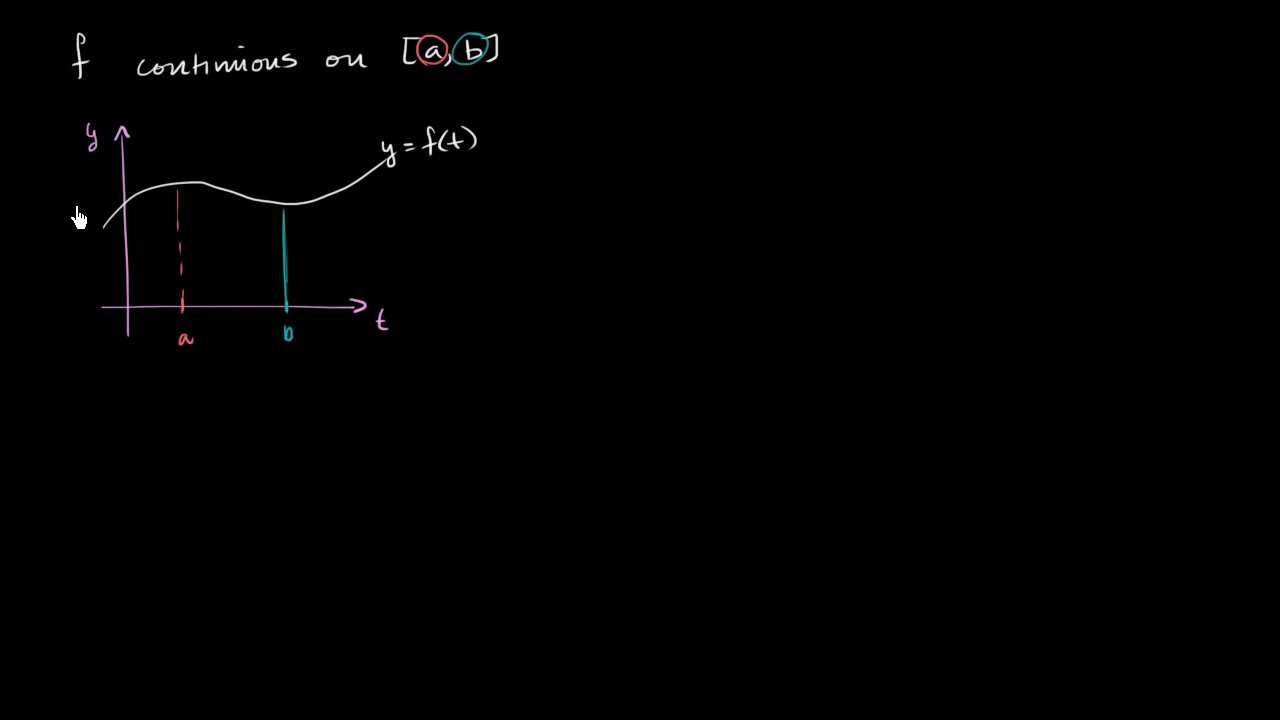 f continuous on [a,b]
y
y = f(t)
t
a
b